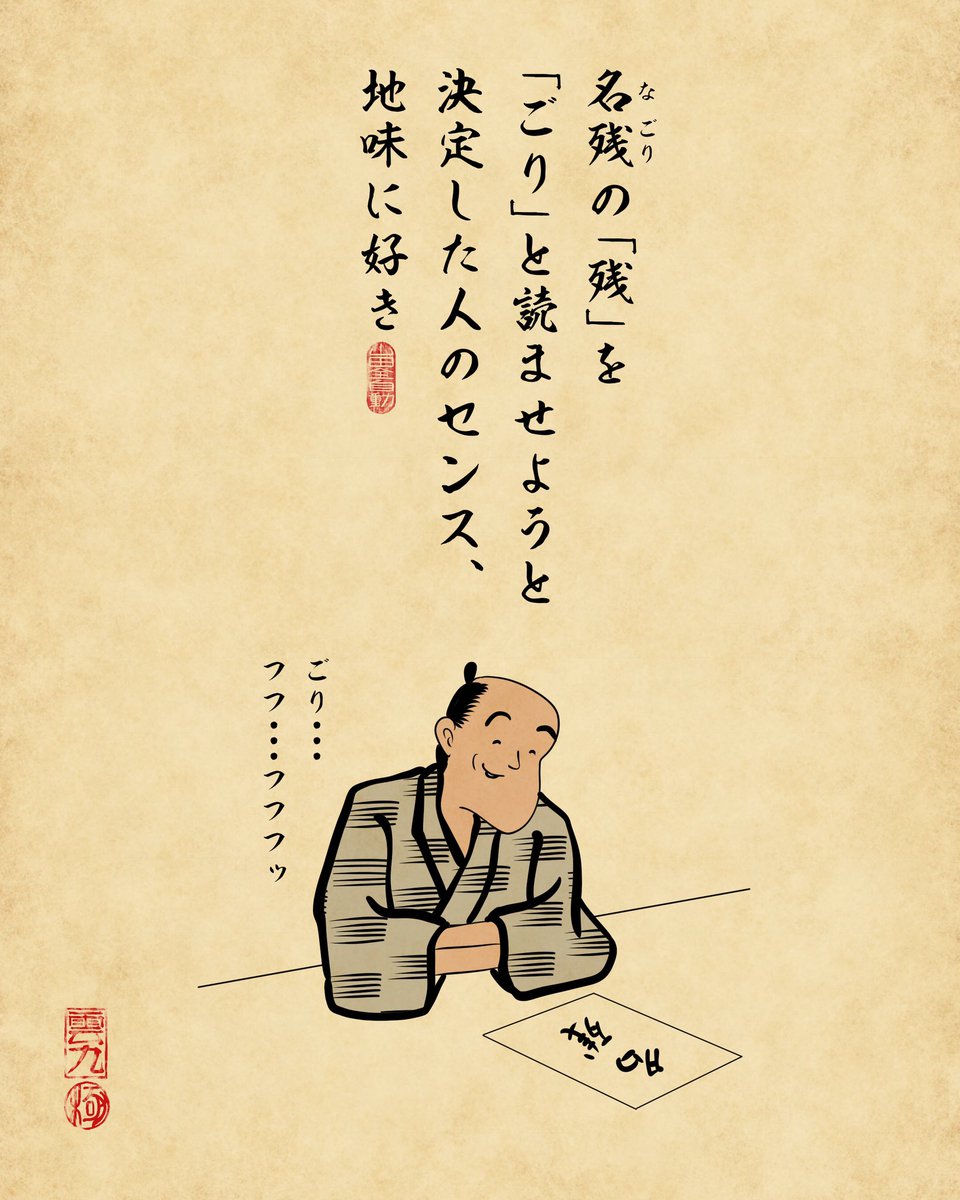 名残の「残」を
なごり
「ごり」と読ませようと
決定した人のセンス、
地味に好き
ごり…
フフ……フフフッ
名残